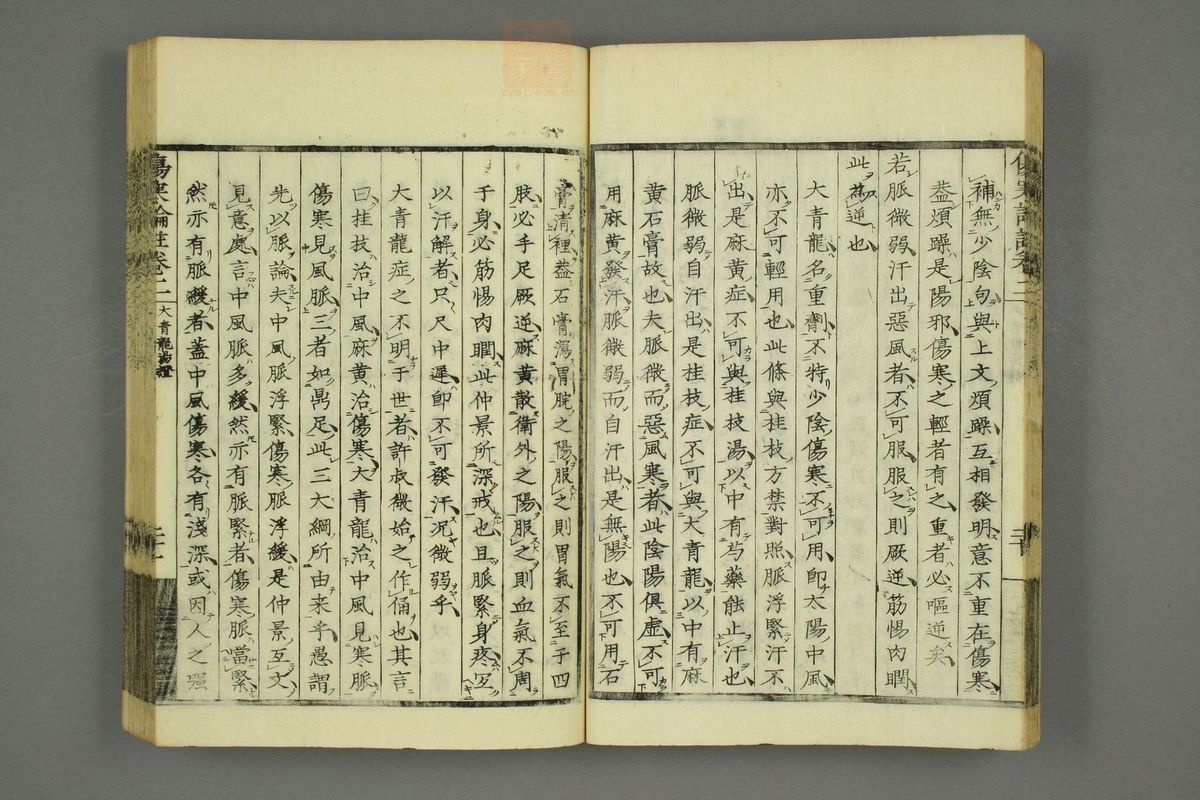 補無少陰句與上文煩躁互相發明意不重在傷寒
蓋煩躁是陽邪傷寒之輕者有之重者必嘔逆矣
若脈微弱汗出惡風者不可服服之則厥逆筋惕肉瞤
此為逆也
大青龍名重劑不特少陰傷寒不可用卽太陽中風
亦不可輕用也此條與桂枝方禁對照脈浮緊汗不
出是麻黃症不可與桂枝湯以中有芍藥能止汗也
脈微弱自汗出是桂枝症不可與大青龍以中有麻
黃石膏故也夫脈微而惡風寒者此陰陽俱虛不可
用麻黃發汗脈微弱而自汗出是無陽也不可用石
膏清裡蓋石膏瀉胃脘之陽服之則胃氣不至于四
肢必手足厥逆麻黃散衛外之陽服之則血氣不周
于身必筋惕肉瞤此仲景所深戒也且脈緊身疼宜
以汗解者只尺中遲卽不可發汗況微弱乎
大青龍症之不明于世者許叔微始之作俑也其言
曰桂枝治中風麻黃治傷寒大青龍治中風見寒脈
傷寒見風脈三者如鼎足此三大綱所由來乎愚謂
先以脈論夫中風脈浮緊傷寒脈浮緩是仲景互文
見意處言中風脈多緩然亦有脈緊者傷寒脈當緊
然亦有脈緩者蓋中風傷寒各有淺深或因人之强
傷寒論註卷二
大青龍湯證